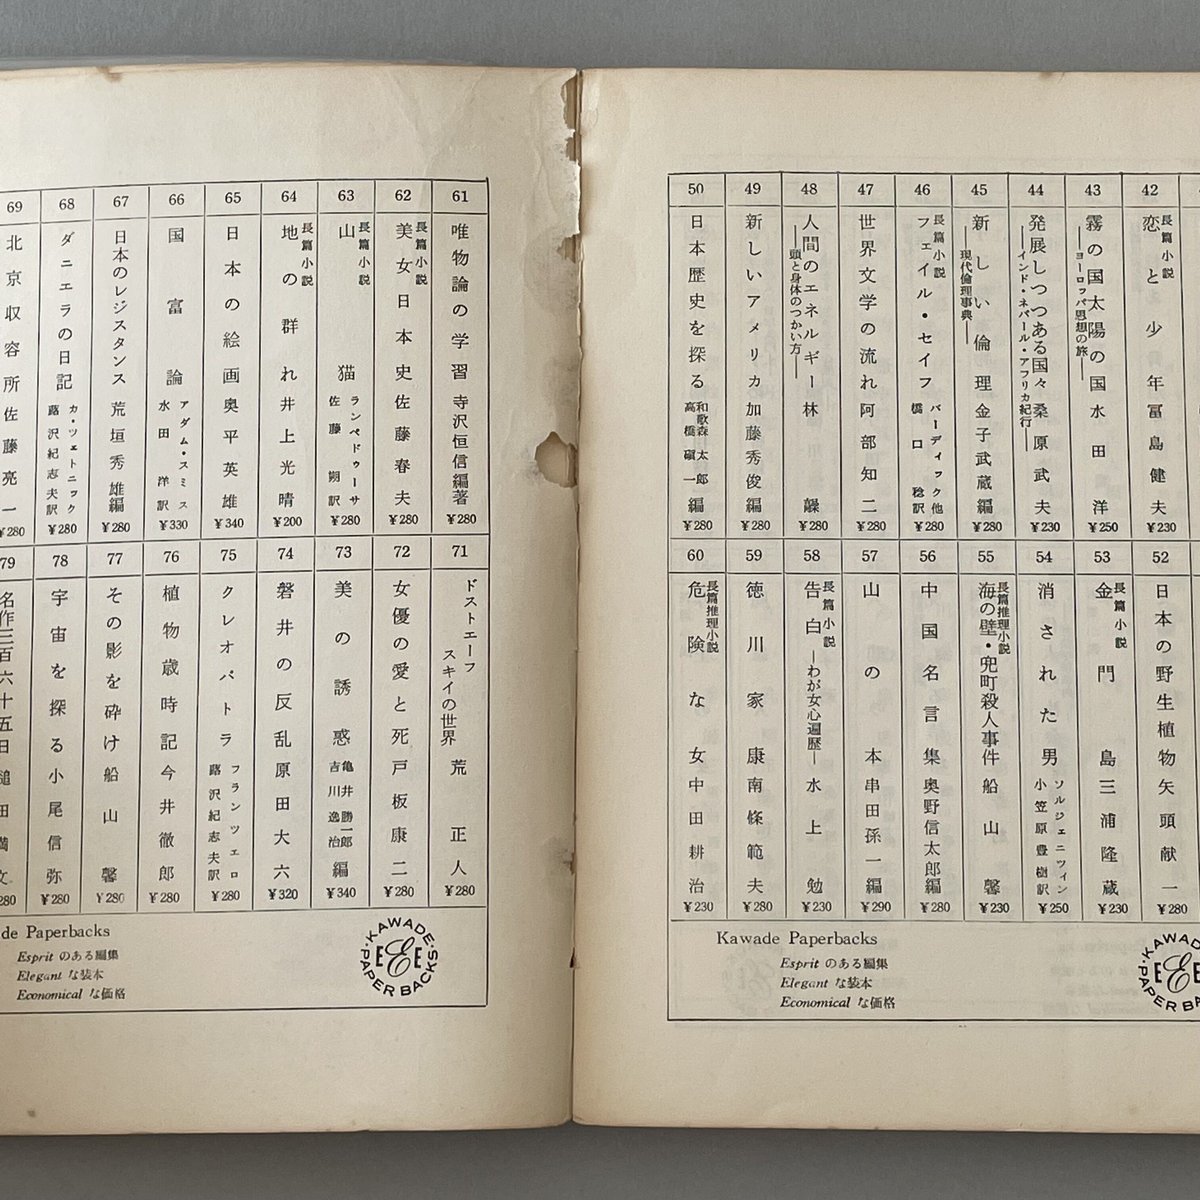 42
長篇小説
恋と少年 冨島健夫
¥230
43
霧の国太陽の国
―ヨーロッパ思想の旅―
水田洋
¥250
44
発展しつつある国々
―インド・ネパール・アフリカ紀行―
桑原武夫
¥230
45
新しい倫理
―現代倫理事典―
金子武蔵編
¥280
46
長篇小説
フェイル・セイフ
バーディック他
橋口稔訳
¥280
47
世界文学の流れ 阿部知二
¥280
48
人間のエネルギー
―頭と身体のつかい方―
林髞
¥280
49
新しいアメリカ 加藤秀俊編
¥280
50
日本歴史を探る
和歌森太郎
高橋磌一
編
¥280
52
日本の野生植物 矢頭献一
¥280
53
長篇小説
金門島 三浦隆蔵
¥230
54
消された男
ソルジェニツィン
小笠原豊樹訳
¥250
55
長篇推理小説
海の壁・兜町殺人事件 船山馨
¥230
56
中国名言集 奥野信太郎編
¥280
57
山の本 串田孫一編
¥290
58
長篇小説
告白―わが女心遍歴―
水上勉
¥230
59
徳川家康 南條範夫
¥280
60
長篇推理小説
危険な女 中田耕治
¥230
Kawade Paperbacks
Esprit のある編集
Elegant な装本
Economical な価格
KAWADE
PAPER BACKS
EEE
61
唯物論の学習 寺沢恒信編著
¥280
62
長篇小説
美女日本史 佐藤春夫
¥280
63
長篇小説
山猫
ランペドゥーサ
佐藤朔訳
¥280
64
長篇小説
地の群れ 井上光晴
¥200
65
日本の絵画 奥平英雄
¥340
66
国富論
アダム・スミス
水田洋訳
¥330
67
日本のレジスタンス 荒垣秀雄編
¥280
68
ダニエラの日記
カ・ツェトニック
蕗沢紀志夫訳
¥280
69
北京収容所 佐藤亮一
¥280
71
ドストエーフスキイの世界
荒正人
¥280
72
女優の愛と死 戸板康二
¥280
73
美の誘惑
亀井勝一郎
吉川逸治
編
¥340
74
磐井の反乱 原田大六
¥320
75
クレオパトラ
フランツェロ
蕗沢紀志夫訳
¥280
76
植物歳時記 今井徹郎
¥280
77
その影を砕け 船山馨
¥280
78
宇宙を探る 小尾信弥
¥280
79
名作三百六十五日 槌田満文
280
de Paperbacks
Esprit のある編集
Elegant な装本
Economical な価格
KAWADE
PAPER BACKS
EEE